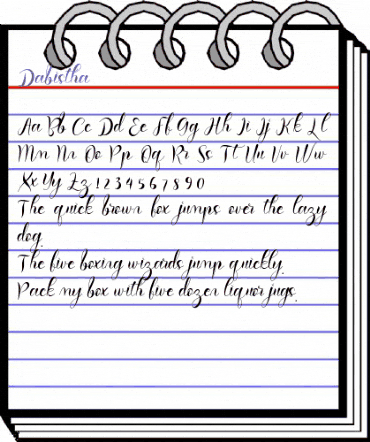 Dabistha
Aa Bb Cc Dd Ee Ff Gg Hh Ii Jj Kk Ll
Mm Nn Oo Pp Qq Rr Ss Tt Uu Vv Ww
Xx Yy Zz 1 2 3 4 5 6 7 8 9 0
The quick brown fox jumps over the lazy
dog.
The five boxing wizards jump quickly.
Pack my box with five dozen liquor jugs.